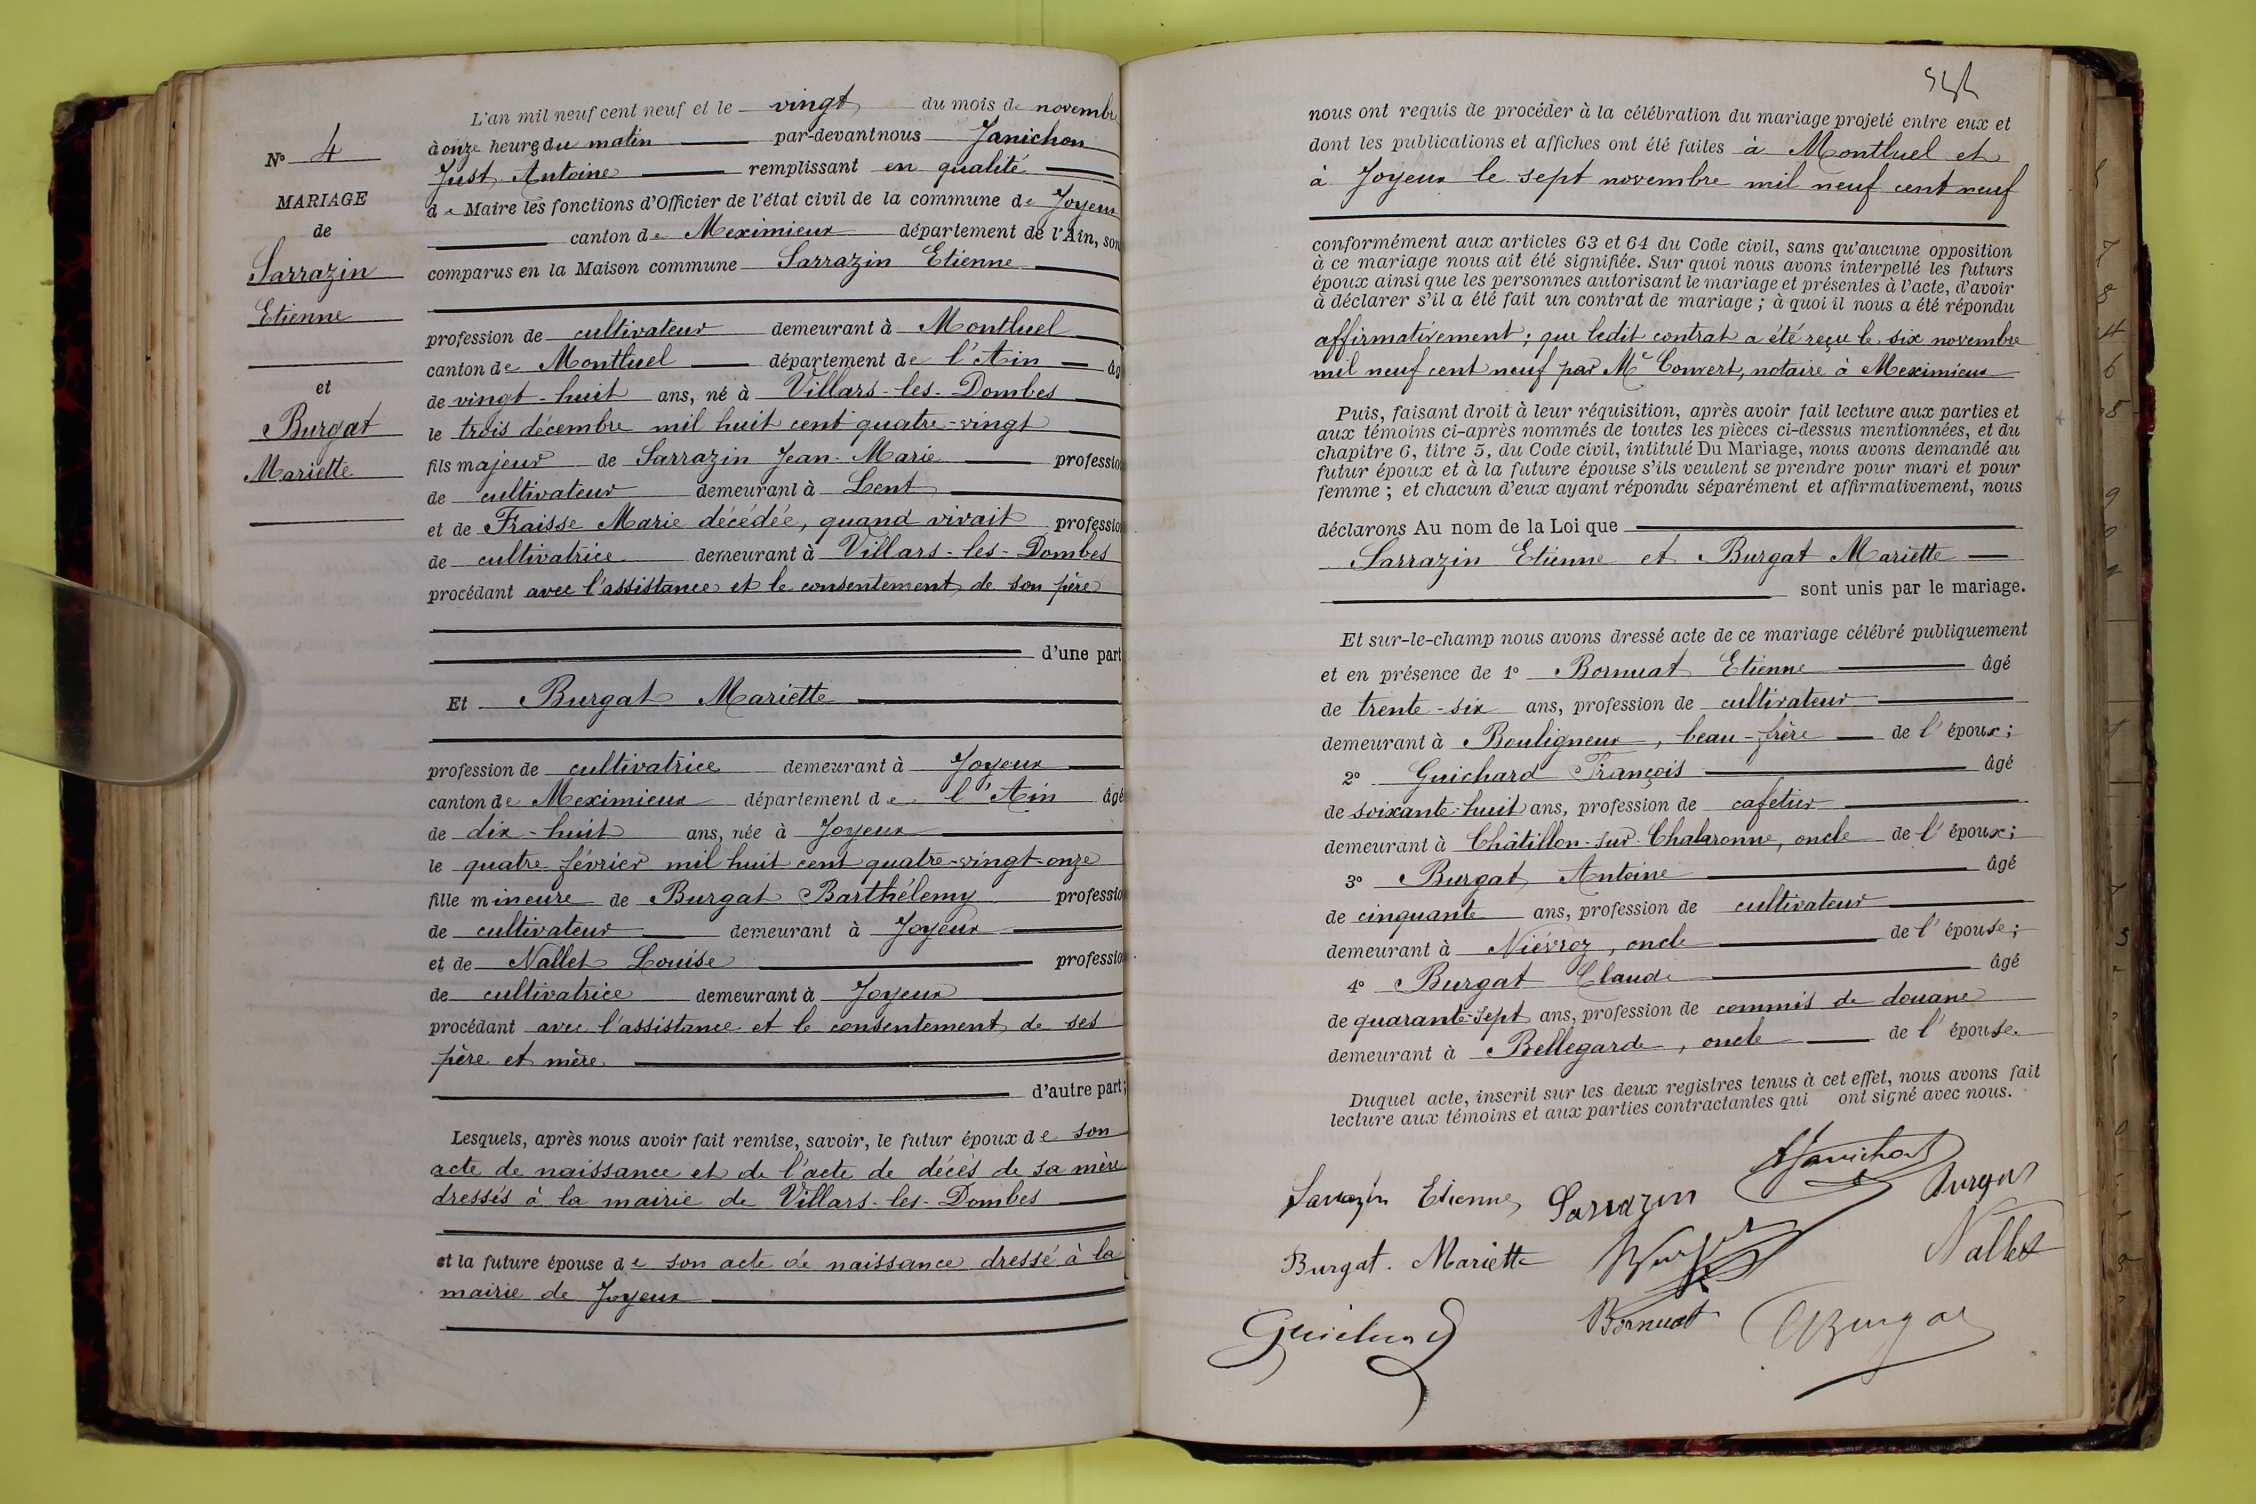 N° 4
MARIAGE
de
Sarrazin
Etienne
et
Burgat
Mariette
L'an mil neuf cent neuf et le vingt du mois de novembre
à onze heures du matin par-devant nous Janichon
Just Antoine remplissant en qualité
de Maire les fonctions d'Officier de l'état civil de la commune de Joyeux
canton de Meximieux département de l'Ain, son
comparus en la Maison commune Sarrazin Etienne
profession de cultivateur demeurant à Montluel
canton de Montluel département de l'Ain âg
de vingt-huit ans, né à Villars-les-Dombes
le trois décembre mil huit cent quatre-vingt
fils majeur de Sarrazin Jean-Marie professio
de cultivateur demeurant à Lent
et de Fraisse Marie décédée, quand vivait professio
de cultivatrice demeurant à Villars-les-Dombes
procédant avec l'assistance et le consentement de son père
d'une part
Et Burgat Mariette
profession de cultivatrice demeurant à Joyeux
canton de Meximieux département de l'Ain âgé
de dix-huit ans, née à Joyeux
le quatre février mil huit cent quatre-vingt-onze
fille mineure de Burgat Barthélemy professio
de cultivateur demeurant à Joyeux
et de Nallet Louise professio
de cultivatrice demeurant à Joyeux
procédant avec l'assistance et le consentement de ses
père et mère
d'autre part;
Lesquels, après nous avoir fait remise, savoir, le futur époux de son
acte de naissance et de l'acte de décès de sa mère
dressés à la mairie de Villars-les-Dombes
et la future épouse de son acte de naissance dressé à la
mairie de Joyeux
nous ont requis de procéder à la célébration du mariage projeté entre eux et
dont les publications et affiches ont été faites à Montluel et
à Joyeux le sept novembre mil neuf cent neuf
conformément aux articles 63 et 64 du Code civil, sans qu'aucune opposition
à ce mariage nous ait été signifiée. Sur quoi nous avons interpellé les futurs
époux ainsi que les personnes autorisant le mariage et présentes à l'acte, d'avoir
à déclarer s'il a été fait un contrat de mariage; à quoi il nous a été répondu
affirmativement; que ledit contrat a été reçu le six novembre
mil neuf cent neuf par Me Convert, notaire à Meximieux
Puis, faisant droit à leur réquisition, après avoir fait lecture aux parties et
aux témoins ci-après nommés de toutes les pièces ci-dessus mentionnées, et du
chapitre 6, titre 5, du Code civil, intitulé Du Mariage, nous avons demandé au
futur époux et à la future épouse s'ils veulent se prendre pour mari et pour
femme; et chacun d'eux ayant répondu séparément et affirmativement, nous
déclarons Au nom de la Loi que
Sarrazin Etienne et Burgat Mariette
sont unis par le mariage.
Et sur-le-champ nous avons dressé acte de ce mariage célébré publiquement
et en présence de 1° Bornuat Etienne âgé
de trente-six ans, profession de cultivateur
demeurant à Bouligneux, beau-frère de l'époux;
2° Guichard François âgé
de soixante-huit ans, profession de cafetier
demeurant à Châtillon-sur-Chalaronne, oncle de l'époux;
3° Burgat Antoine âgé
de cinquante ans, profession de cultivateur
demeurant à Niévroz, oncle de l'épouse;
4° Burgat Claude âgé
de quarante-sept ans, profession de commis de douane
demeurant à Bellegarde, oncle de l'épouse.
Duquel acte, inscrit sur les deux registres tenus à cet effet, nous avons fait
lecture aux témoins et aux parties contractantes qui ont signé avec nous.
Janichon
Sarrazin Etienne Sarrazin Burgat
Burgat. Mariette Nallet
Guichard Bornuat CBurgat